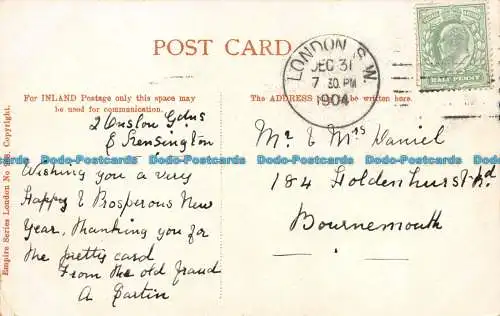 POST CARD
For INLAND Postage only this space may
be used for communication.
The ADDRESS to be written here.
LONDON. S.W.
DEC 31
7 30 PM
1904
HALF PENNY
2 Onslow Gdns
Kensington
Wishing you a very
Happy & Prosperous New
Year, Thanking you for
the pretty card
From the old fraud
A
Mr & Mrs Daniel
184 Holdenhurst Rd
Bournemouth
Empire Series London No Copyright.
Dodo-Postcards Dodo-Postcards Dodo-Postcards Dodo-Postcards Dodo-Postcards